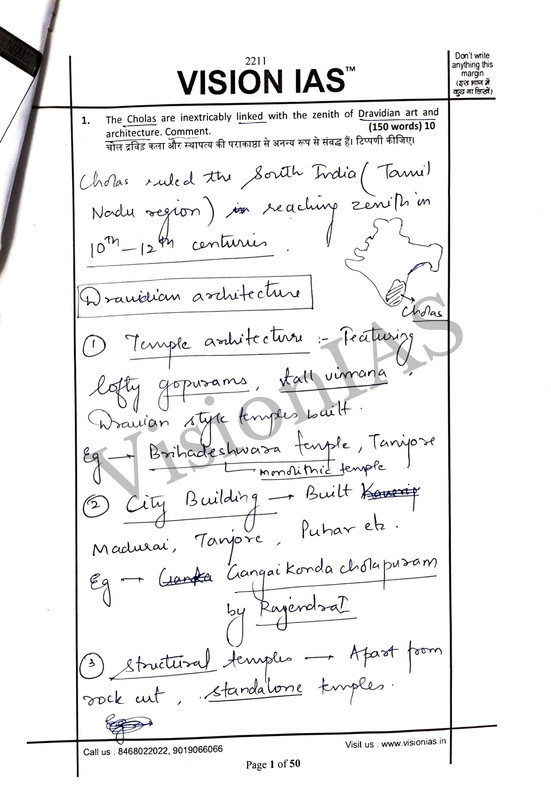 2211
VISION IAS™
Don't write
anything this
margin
(इस भाग में
कुछ ना लिखें)
1. The Cholas are inextricably linked with the zenith of Dravidian art and
architecture. Comment. (150 words) 10
चोल द्रविड़ कला और स्थापत्य की पराकाष्ठा से अनन्य रूप से संबद्ध हैं। टिप्पणी कीजिए।
Cholas ruled the South India (Tamil
Nadu region) in reaching zenith in
10th – 12th centuries.
Cholas
Dravidian architecture
① Temple architecture :- Featuring
lofty gopurams, tall vimana,
Dravian style temples built.
Eg → Brihadeshwara temple, Tanjore
monolithic temple
② City Building → Built
Madurai, Tanjore, Puhar etc.
Eg → Gangaikonda cholapuram
by Rajendra I
③ Structural temples → Apart from
rock cut, standalone temples.
VisionIAS
Call us : 8468022022, 9019066066
Visit us : www.visionias.in
Page 1 of 50